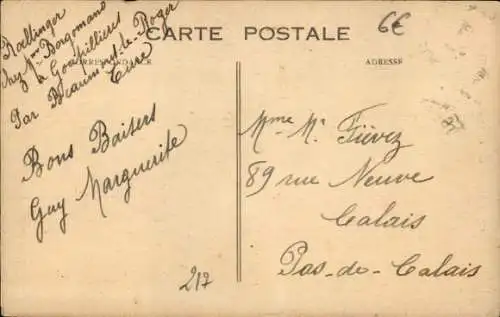 CARTE POSTALE
6€
CORRESPONDANCE
ADRESSE
Raettinger
chez Mr Borgomano
à Goupillières
Par Beaumont-le-Roger
Eure
Bons Baisers
Guy Marguerite
217
Mme M. Fiévez
89 rue Neuve
Calais
Pas-de-Calais